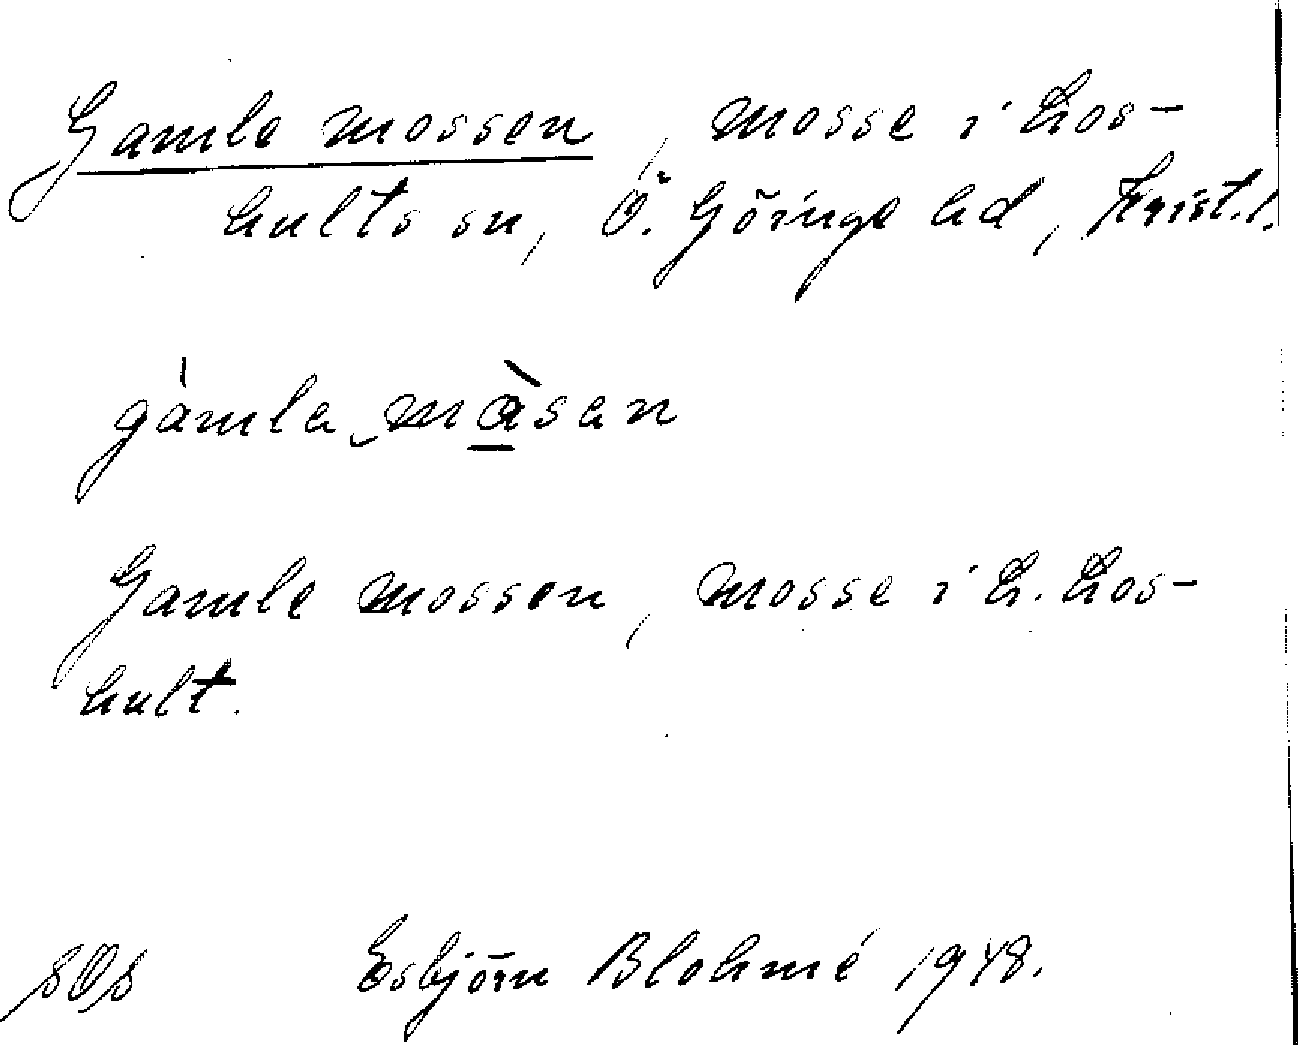 Gamle mossen, mosse i Los-
hults sn, Ö. Göinge hd, Krist. l.
gàmla màsan
Gamle mossen, mosse i L. Los-
hult.
Esbjörn Blohmé 1948.